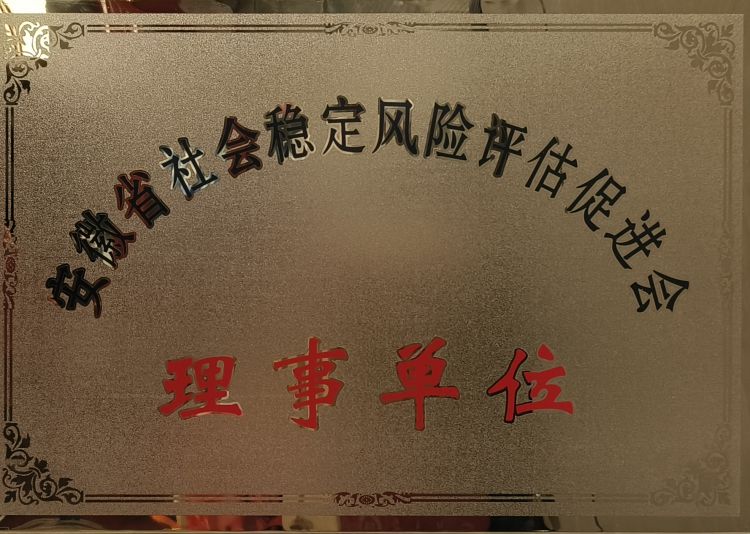 安徽省社会稳定风险评估促进会
理事单位